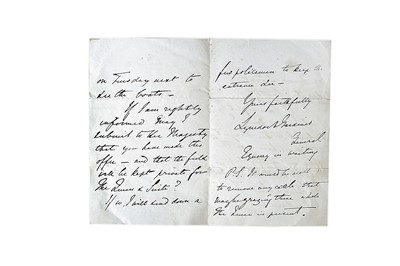 on Tuesday next to
see the boats –
If I am rightly
informed may I
submit to Her Majesty
that you have made this
offer – and that the field
will be kept private for
The Queen & Suite?
If so, I will send down a
few policemen to keep the
entrance &c –
Yours faithfully
Lynedoch Gardiner
General
Equerry in waiting
P.S. It would be well
to remove any cattle that
may be grazing there while
The Queen is present.